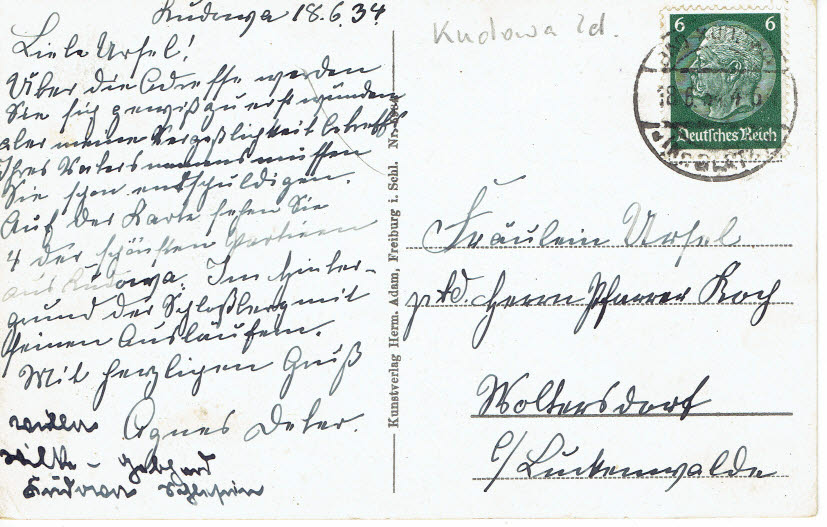 Kudowa 18.6.34
Liebe Ursel!
Über die Adresse werden
Sie sich gewiß zuerst wundern
aber meine Vergeßlichkeit betreffs
Ihres Vatersnamens müssen
Sie schon entschuldigen.
Auf der Karte sehen Sie
4 der schönsten Partieen
aus Kudowa. Im Hinter-
grund der Schloßberg mit
seinen Ausläufern.
Mit herzlichen Gruß
Agnes Deter.
Villa
Gebhard
Kudowa Schlesien
Kunstverlag Herm. Adam, Freiburg i. Schl. Nr.
Kudowa
6 6
Deutsches Reich
18.6
Fräulein Ursel
ptd. Herrn Pfarrer Koch
Woltersdorf
b/Luckenwalde